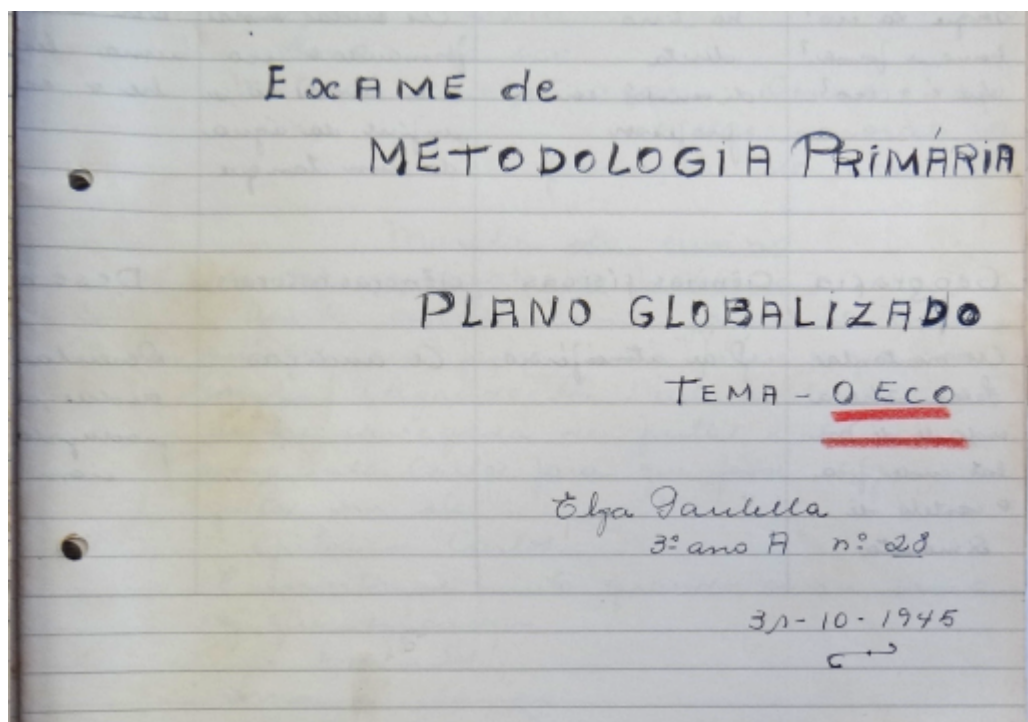 EXAME de
METODOLOGIA PRIMÁRIA
PLANO GLOBALIZADO
TEMA - O ECO
Elga
3º ano A nº 28
31-10-1945